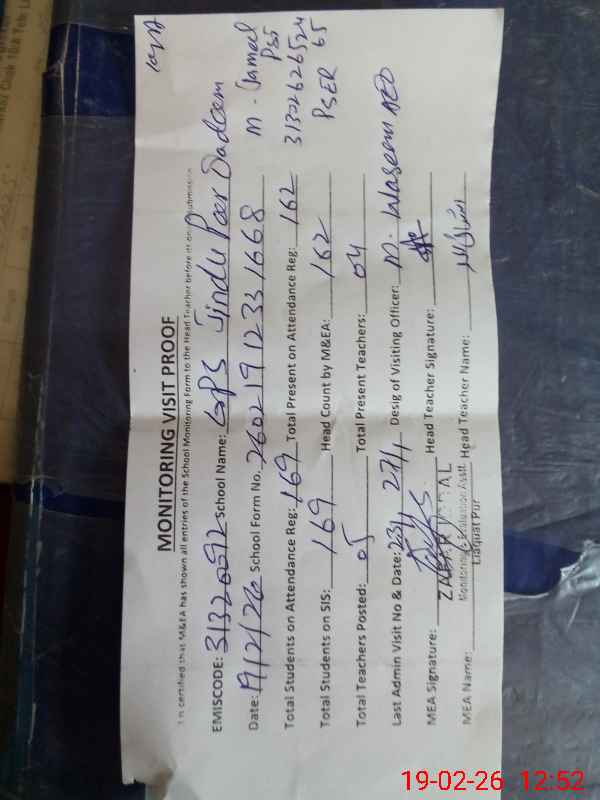 MONITORING VISIT PROOF
certified that M&EA has shown all entries of the School Monitoring Form to the Head Teacher before its submission
EMISCODE: 31320092 School Name: GPS Jindu Peer
Date: 19/2/26 School Form No. 26021912331668
Total Students on Attendance Reg: 169 Total Present on Attendance Reg: 162
Total Students on SIS: 169 Head Count by M&EA: 162
Total Teachers Posted: 05 Total Present Teachers: 04
Last Admin Visit No & Date: 27/1 Desig of Visiting Officer: M. Waseem AEO
MEA Signature: Head Teacher Signature:
MEA Name: Head Teacher Name:
ZAFAR IQBAL
Monitoring & Evaluation Asstt.
Liaquat Pur
M. Jameel
PST
PSER
65
19-02-26 12:52